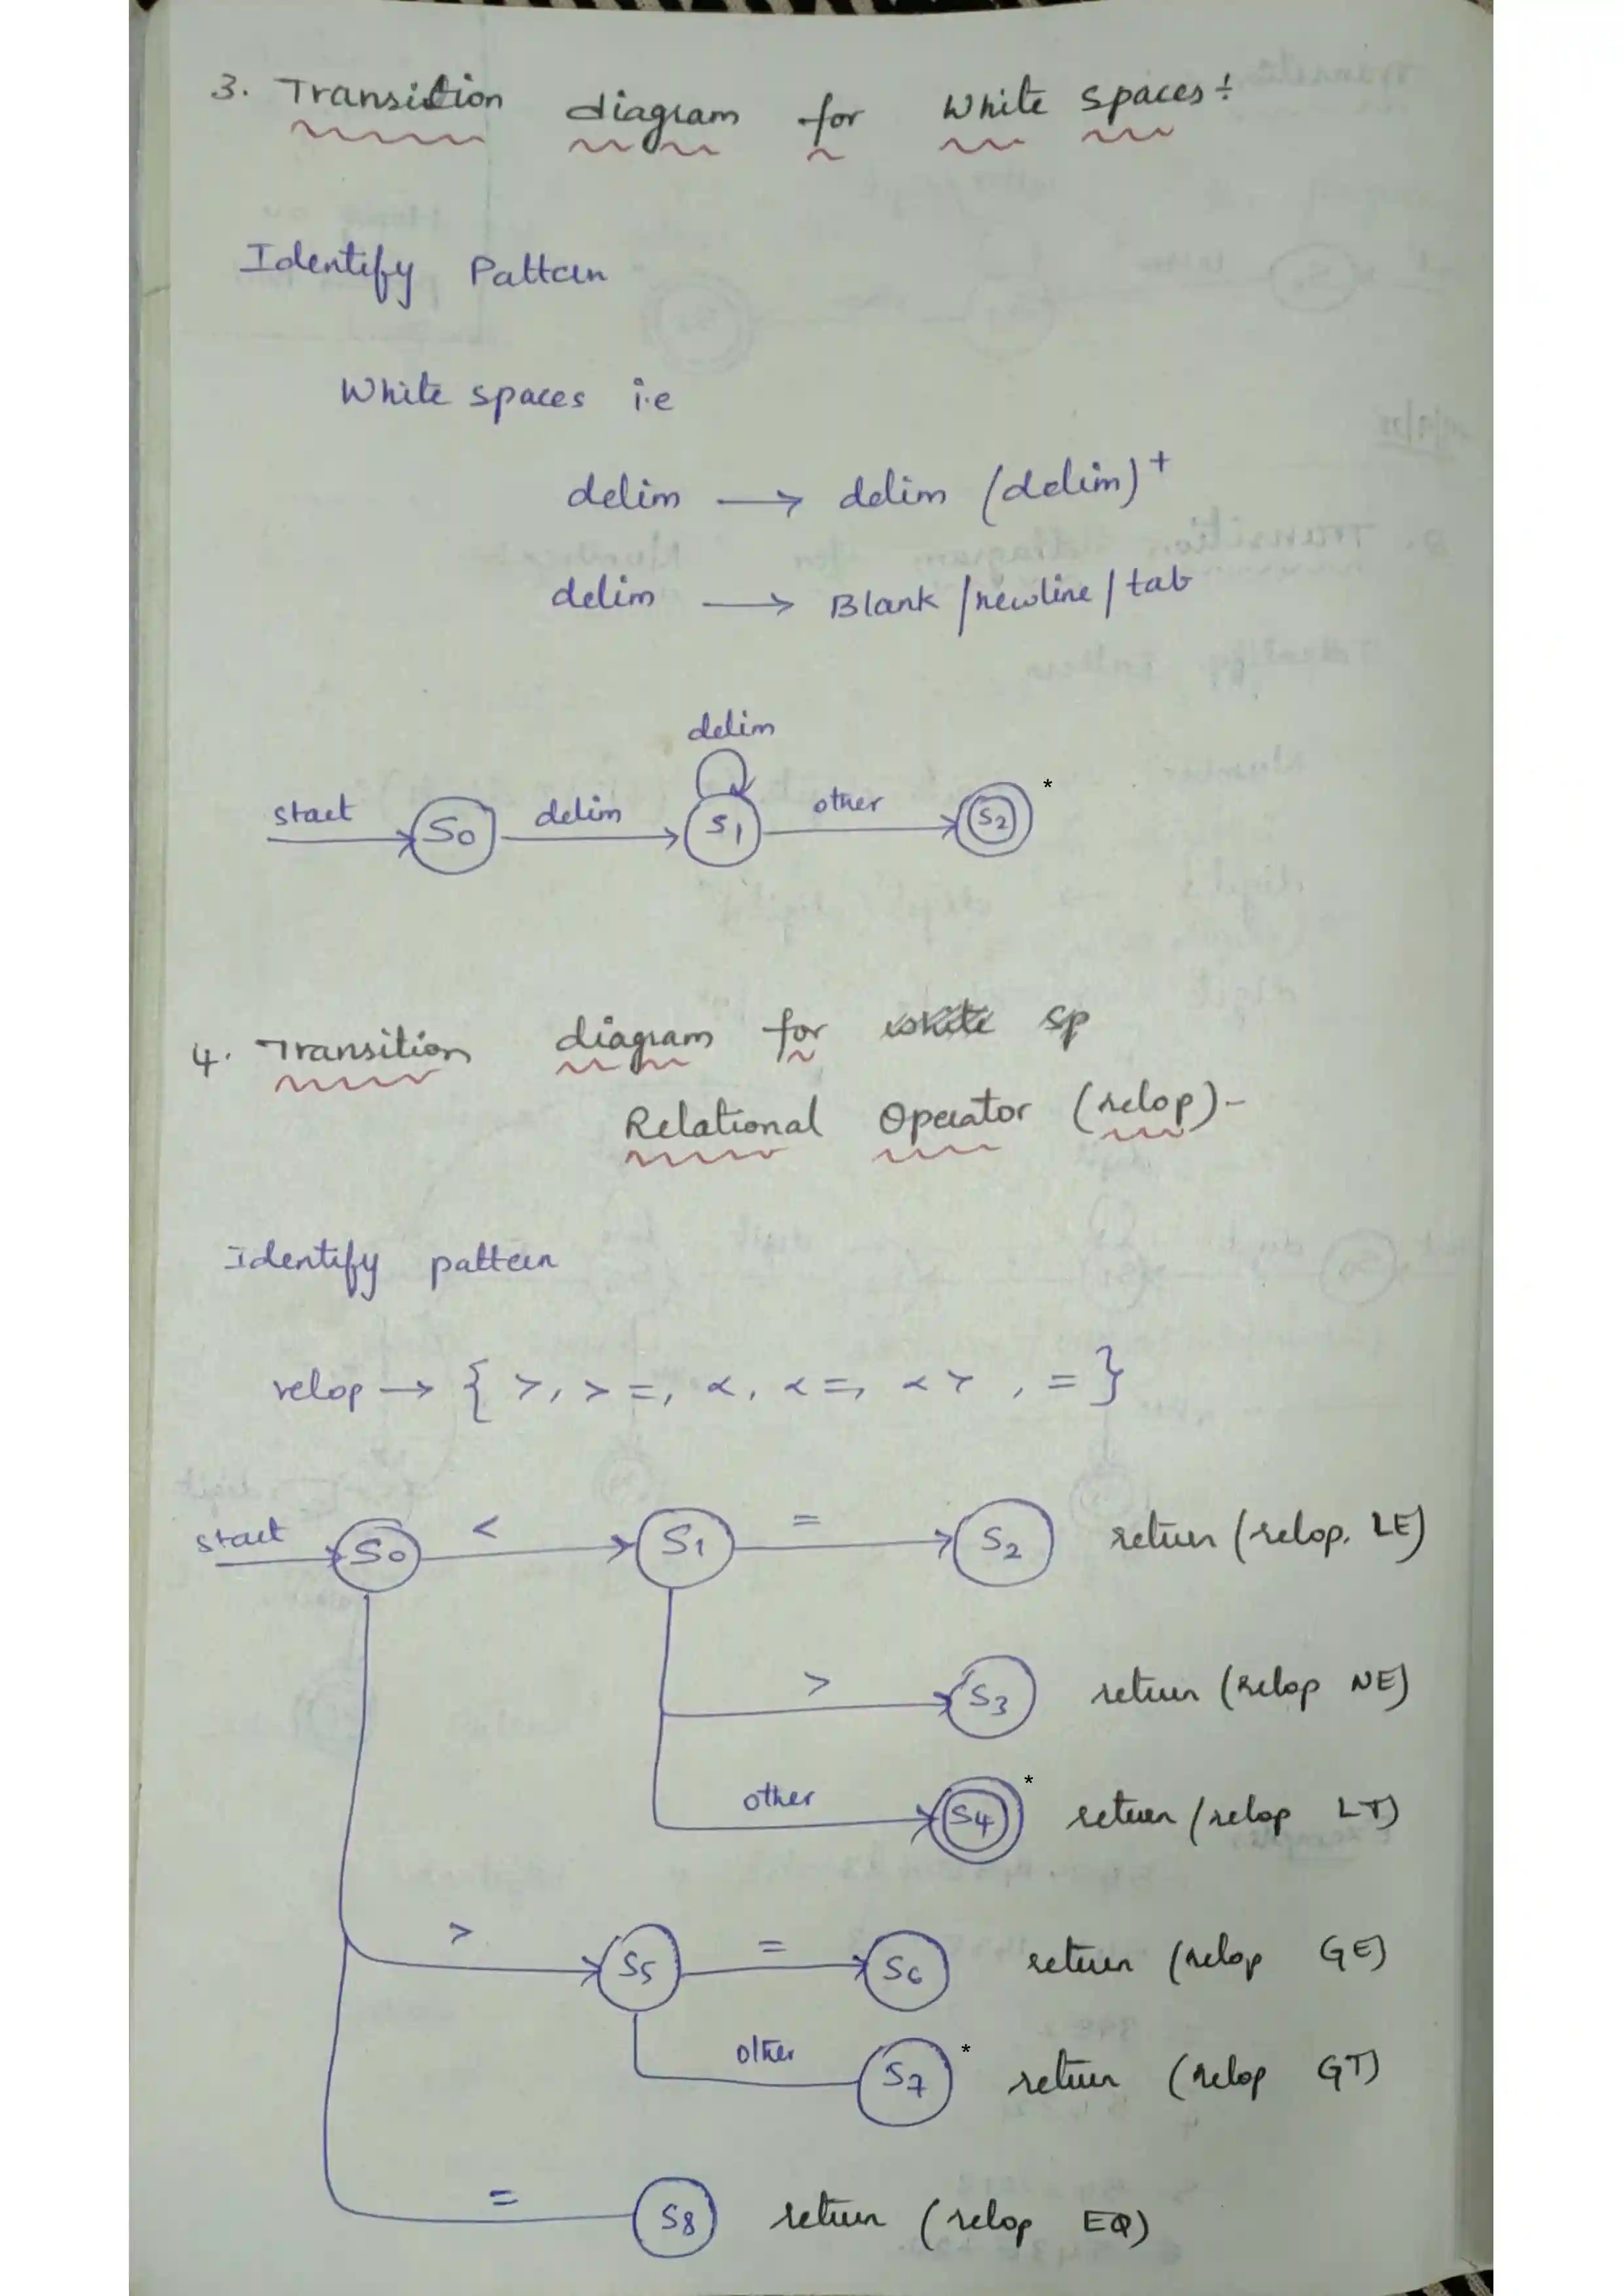 3. Transition diagram for White Spaces:
Identify Pattern
White spaces i.e
delim → delim (delim)+
delim → Blank /newline / tab
delim
start S0 delim S1 other S2 *
4. Transition diagram for white sp
Relational Operator (relop)-
Identify pattern
relop → { >, >=, <, <=, <> , = }
start S0 < S1 = S2 return (relop, LE)
> S3 return (relop NE)
other S4 * return (relop LT)
> S5 = S6 return (relop GE)
other S7 * return (relop GT)
= S8 return (relop EQ)